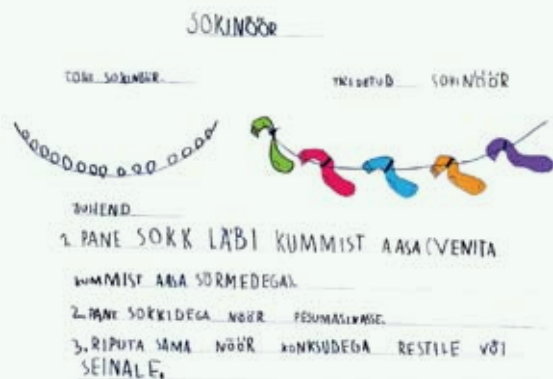 SOKINÖÖR
SOKINÖÖR
JUHEND
1. PANE SOKK LÄBI KUMMIST AASA (VENITA
KUMMIST AASA SÕRMEDEGA).
2. PANE SOKKIDEGA NÖÖR PESUMASINASSE.
3. RIPUTA SAMA NÖÖR KONKSUDEGA RESTILE VÕI
SEINALE.